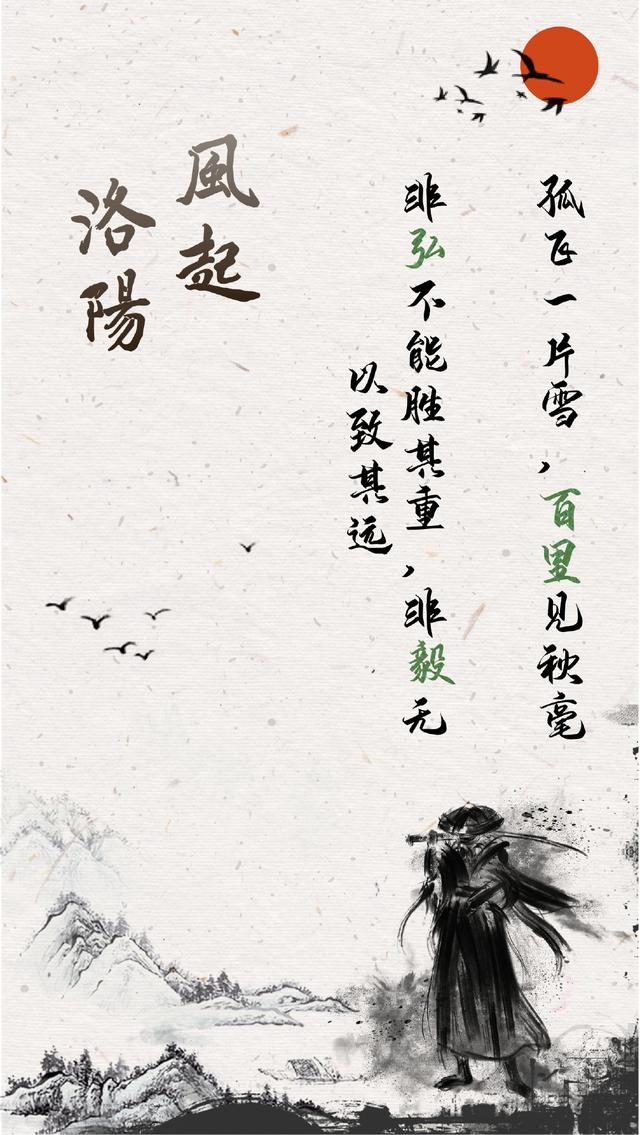 孤飞一片雪，百里见秋毫
非弘不能胜其重，非毅无
以致其远
風起
洛陽